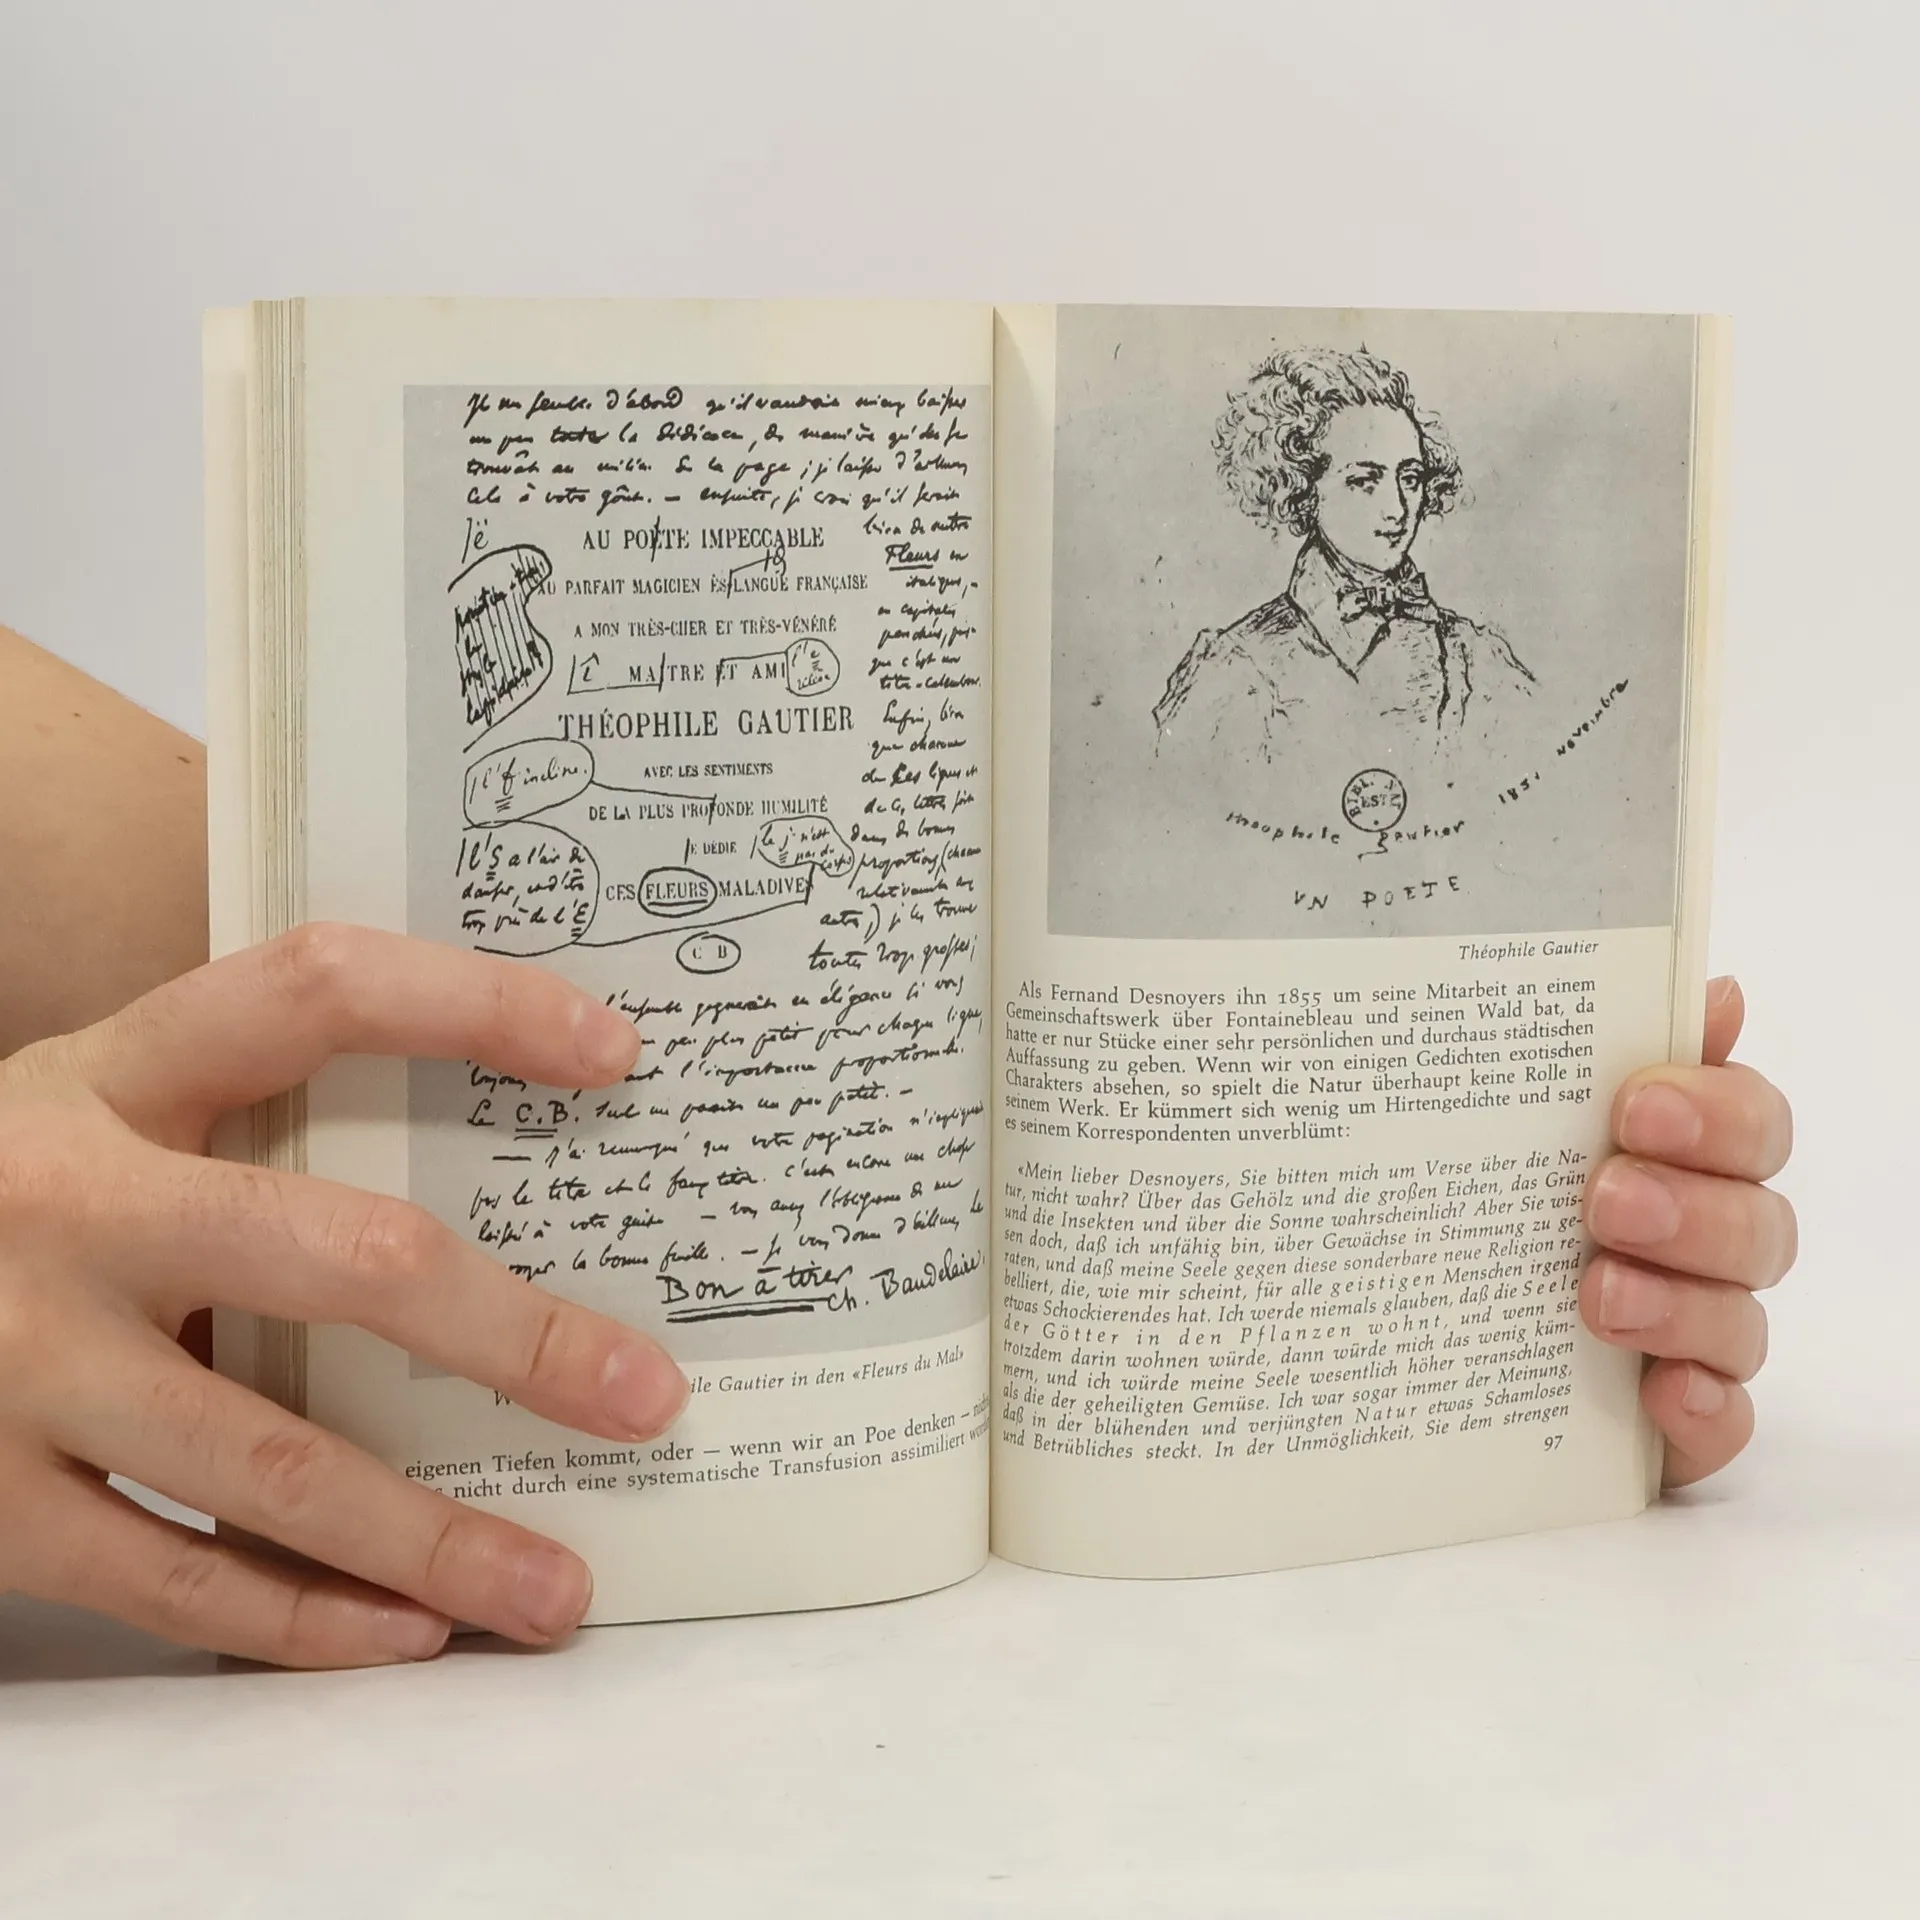 Je un d'abord qu'il vaudrait mieux
un peu toute la dédicace, de manière qu'elle se
trouvât au milieu de la page ; je laisse d'ailleurs
cela à votre goût. — ensuite, je crois qu'il serait
bien de mettre
Fleurs en
italiques, -
en capitales
penchées, puis-
que c'est un
titre-calembour.
Enfin, bien
que chacune
de ces lignes et
de ces lettres soit
dans de bonnes
proportions (chacune
relativement aux
autres) je les trouve
toutes trop grosses ;
/ë
AU POËTE IMPECCABLE
AU PARFAIT MAGICIEN ÈS LANGUE FRANÇAISE
A MON TRÈS-CHER ET TRÈS-VÉNÉRÉ
MAITRE ET AMI
THÉOPHILE GAUTIER
l'f incline.
AVEC LES SENTIMENTS
DE LA PLUS PROFONDE HUMILITÉ
l'S a l'air de
danser,
trop près de l'E
JE DÉDIE
le j n'est
pas du
corps
CES FLEURS MALADIVES
C B
l'ensemble gagnerait en élégance si vous
un peu plus petit pour chaque ligne,
toujours l'importance proportionnelle.
Le C.B. seul me paraît un peu petit. —
— J'ai remarqué que votre pagination n'impliquait
pas le titre et le faux titre. C'est encore une chose
laissée à votre guise — vous avez l'obligeance de me
la bonne feuille. — Je vous donne d'ailleurs le
Bon à tirer
Ch. Baudelaire.
ile Gautier in den «Fleurs du Mal»
eigenen Tiefen kommt, oder — wenn wir an Poe denken —
nicht durch eine systematische Transfusion assimiliert
1851 novembre
BIBL. NAT.
EST.
theophile gautier
UN POETE
Théophile Gautier
Als Fernand Desnoyers ihn 1855 um seine Mitarbeit an einem
Gemeinschaftswerk über Fontainebleau und seinen Wald bat, da
hatte er nur Stücke einer sehr persönlichen und durchaus städtischen
Auffassung zu geben. Wenn wir von einigen Gedichten exotischen
Charakters absehen, so spielt die Natur überhaupt keine Rolle in
seinem Werk. Er kümmert sich wenig um Hirtengedichte und sagt
es seinem Korrespondenten unverblümt:
«Mein lieber Desnoyers, Sie bitten mich um Verse über die Na-
tur, nicht wahr? Über das Gehölz und die großen Eichen, das Grün
und die Insekten und über die Sonne wahrscheinlich? Aber Sie wis-
sen doch, daß ich unfähig bin, über Gewächse in Stimmung zu ge-
raten, und daß meine Seele gegen diese sonderbare neue Religion re-
belliert, die, wie mir scheint, für alle geistigen Menschen irgend
etwas Schockierendes hat. Ich werde niemals glauben, daß die Seele
der Götter in den Pflanzen wohnt, und wenn sie
trotzdem darin wohnen würde, dann würde mich das wenig küm-
mern, und ich würde meine Seele wesentlich höher veranschlagen
als die der geheiligten Gemüse. Ich war sogar immer der Meinung,
daß in der blühenden und verjüngten Natur etwas Schamloses
und Betrübliches steckt. In der Unmöglichkeit, Sie dem strengen
97